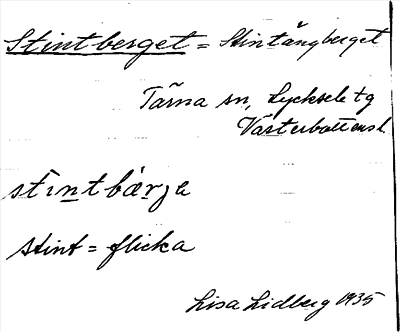 Stintberget = Stintångberget
Tärna sn, Lycksele tg
Västerbottensl.
stint = flicka
Lisa Lidberg 1935